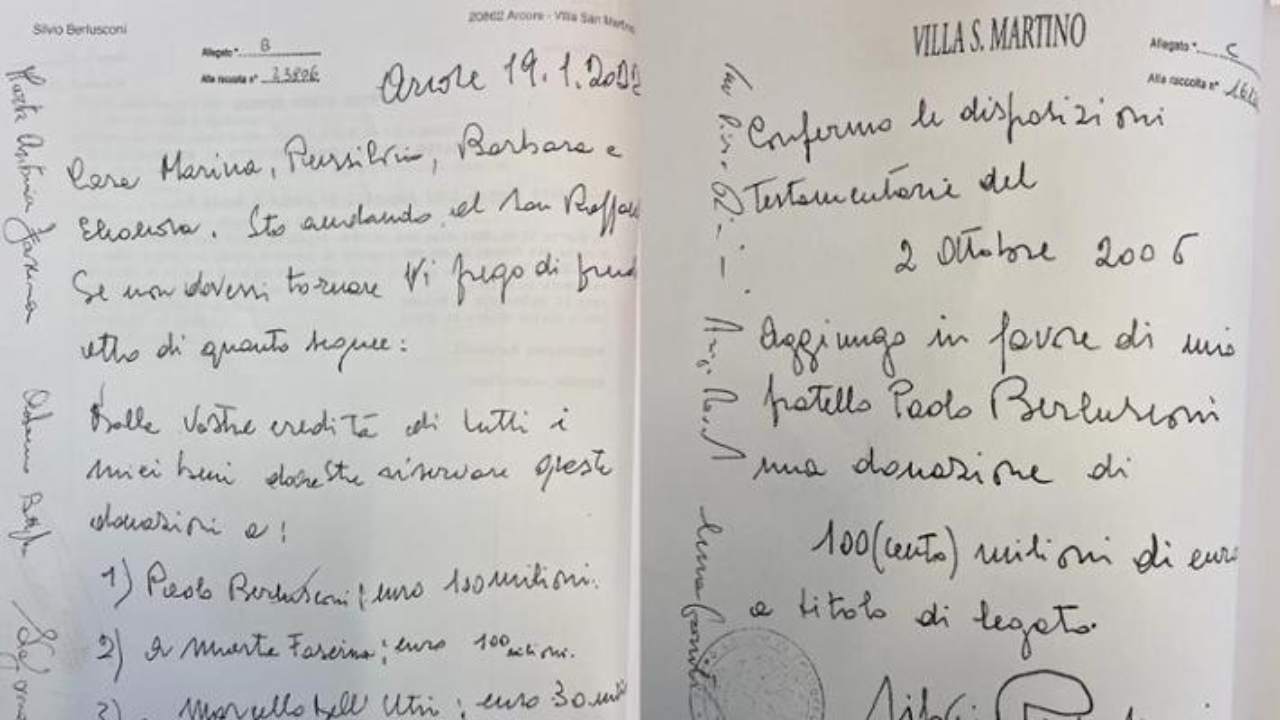 Silvio Berlusconi
20862 Arcore - Villa San Martino
Allegato " B
Alla raccolta n° 23806
Arcore 19.1.2022
Cara Marina, Piersilvio, Barbara e
Eleonora. Sto andando al San Raffae
Se non dovessi tornare Vi prego di prend
etto di quanto segue:
Dalla Vostra eredità di tutti i
miei beni dovreste riservare queste
donazioni a:
1) Paolo Berlusconi; euro 100 milioni.
2) a Marta Fascina; euro 100 milioni.
3) Marcello Dell'Utri; euro 30 mili
Marta Antonia Fascina
VILLA S. MARTINO
Allegato " C
Alla raccolta n°
Confermo le disposizioni
Testamentarie del
2 Ottobre 2006
Aggiungo in favore di mio
fratello Paolo Berlusconi
una donazione di
100 (cento) milioni di euro
a titolo di legato.
Silvio